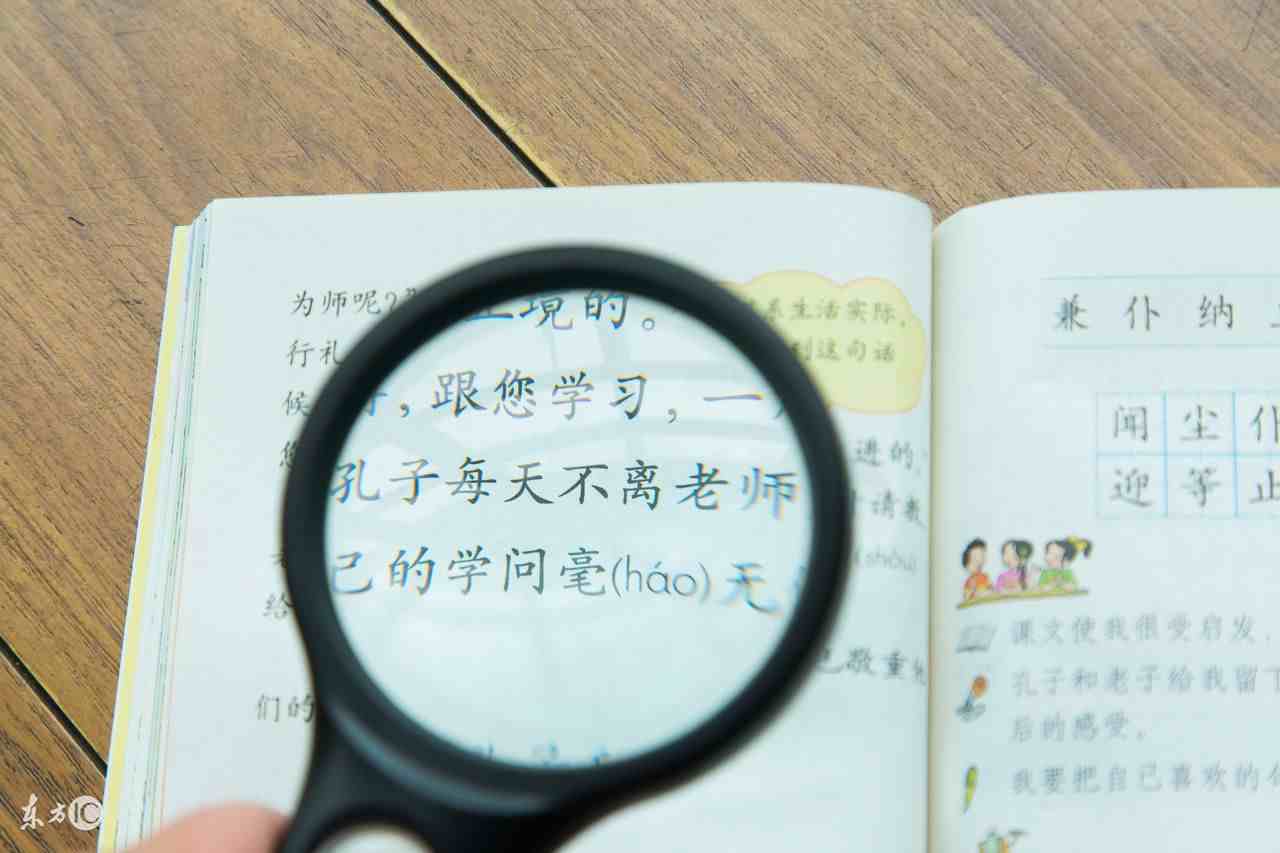 为师呢?
行礼
候
止境的。
，跟您学习，一
孔子每天不离老师
己的学问毫(háo)无
给
们的
系生活实际，
到这句话
进的，
请教
(shòu)
也敬重他
兼 仆 纳
闻 尘 仆
迎 等 止
课文使我很受启发，
孔子和老子给我留下
后的感受。
我要把自己喜欢的
东方IC